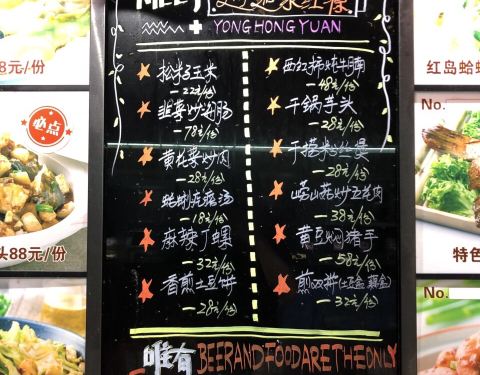 MEET
YONGHONGYUAN
松籽玉米
22元/份
韭菜炒海肠
78元/份
黄花菜炒肉
28元/份
蛤蜊疙瘩汤
18元/份
麻辣丁螺
32元/份
香煎土豆饼
28元/份
西红柿炖牛腩
48元/份
干锅芋头
28元/份
28元/份
崂山菇炒五花肉
38元/份
黄豆焖猪手
58元/份
32元/份
唯有BEERANDFOODARETHEONLY
8元/份
必点
头88元/份
红岛蛤蜊
No.
特色
No.